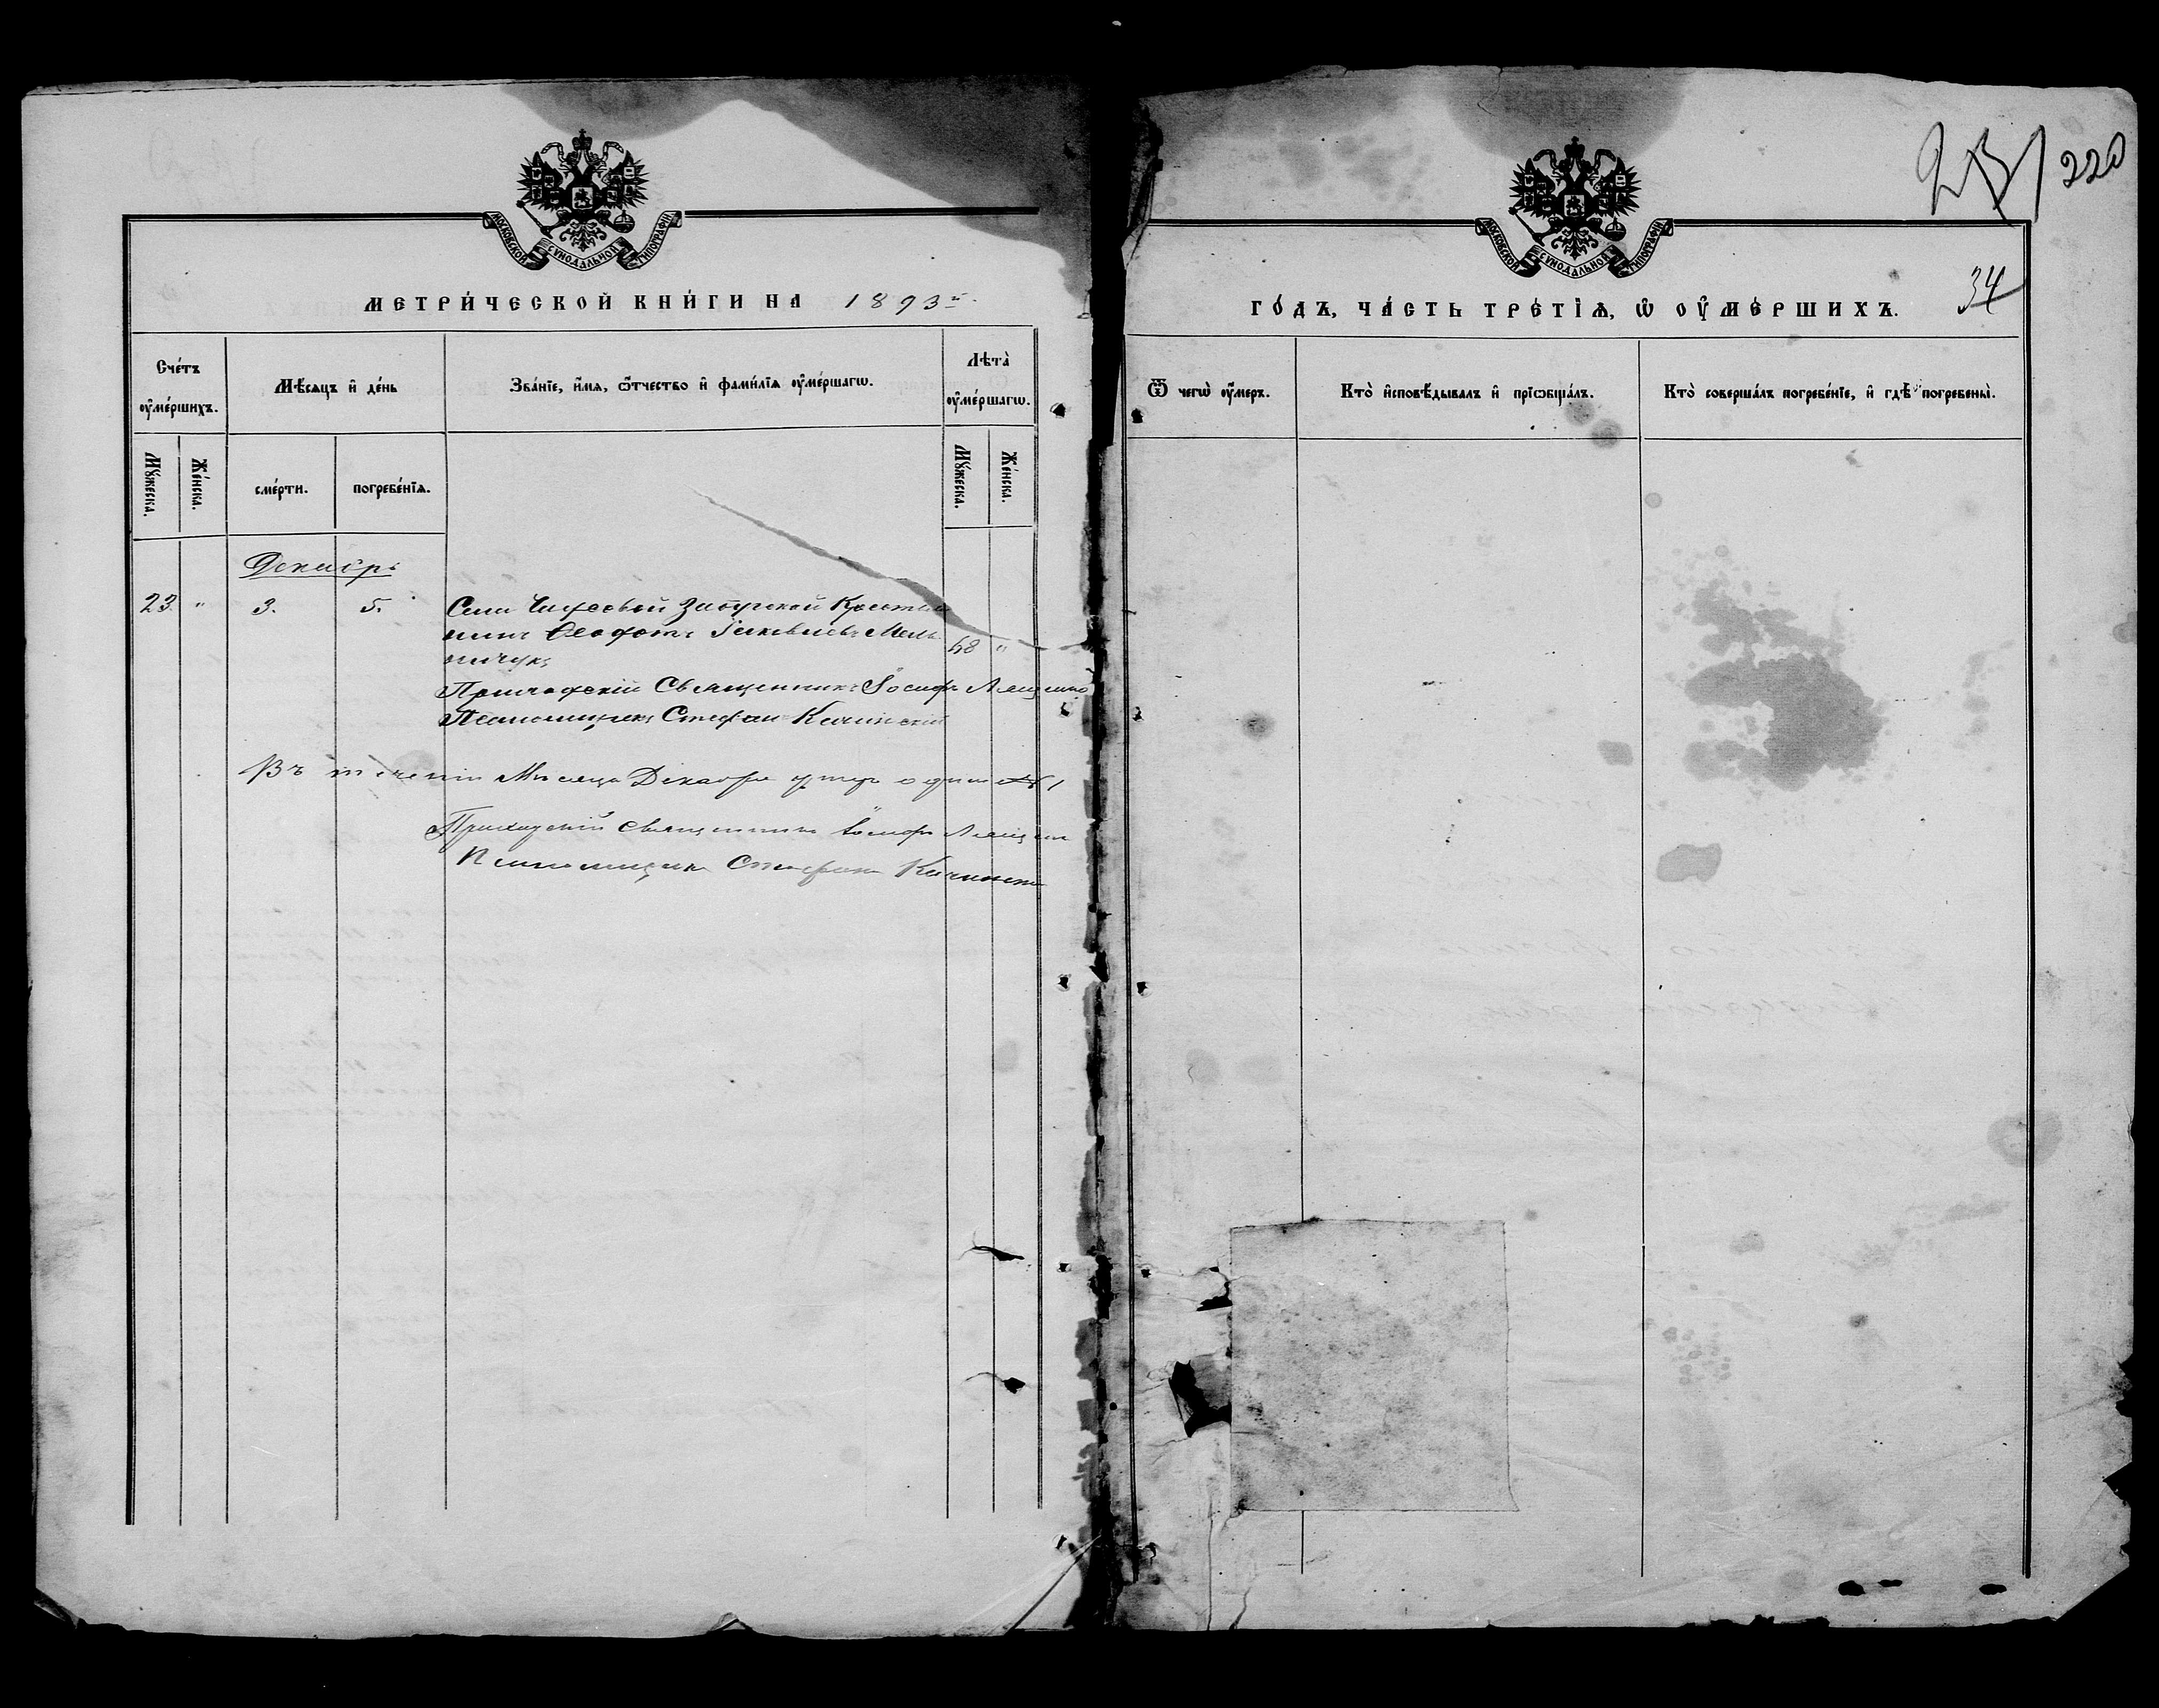 МОСКОВСКОЙ СѴНОДАЛЬНОЙ ТИПОГРАФІИ
МЕТРИ́ЧЕСКОЙ КНИ́ГИ НА 1893й
Сче́тъ ᲂу҆ме́ршихъ.
Мѣ́сяцъ и҆ де́нь
Зва́нїе, и҆́мя, ѻ҆́тчество и҆ фами́лїя ᲂу҆ме́ршагѡ.
Лѣта̀ ᲂу҆ме́ршагѡ.
Мꙋ́жеска.
Же́нска.
сме́рти.
погребе́нїѧ.
Мꙋ́жеска.
Же́нска.
Декабрь
23 " 3. 5. Села Забугской Крестья
нинъ Ѳеофанъ Іаковлевъ Мель
ничукъ 48 "
Приходскій Священникъ Іосифъ
Псаломщикъ Стефанъ Качинскій
Въ теченіи Мѣсяца Декабря умеръ одинъ 1
Приходскій священникъ Іосифъ
Псаломщикъ Стефанъ Качинскій
220
МОСКОВСКОЙ СѴНОДАЛЬНОЙ ТИПОГРАФІИ
34
ГО́ДЪ, ЧА́СТЬ ТРЕ́ТЇѦ, Ѡ҆ ОУ҆МЕ́РШИХЪ.
Ѿ чегѡ̀ ᲂу҆́меръ.
Кто̀ и҆сповѣ́дывалъ и҆ прїѡбща́лъ.
Кто̀ соверша́лъ погребе́нїе, и҆ гдѣ̀ погребены̀.